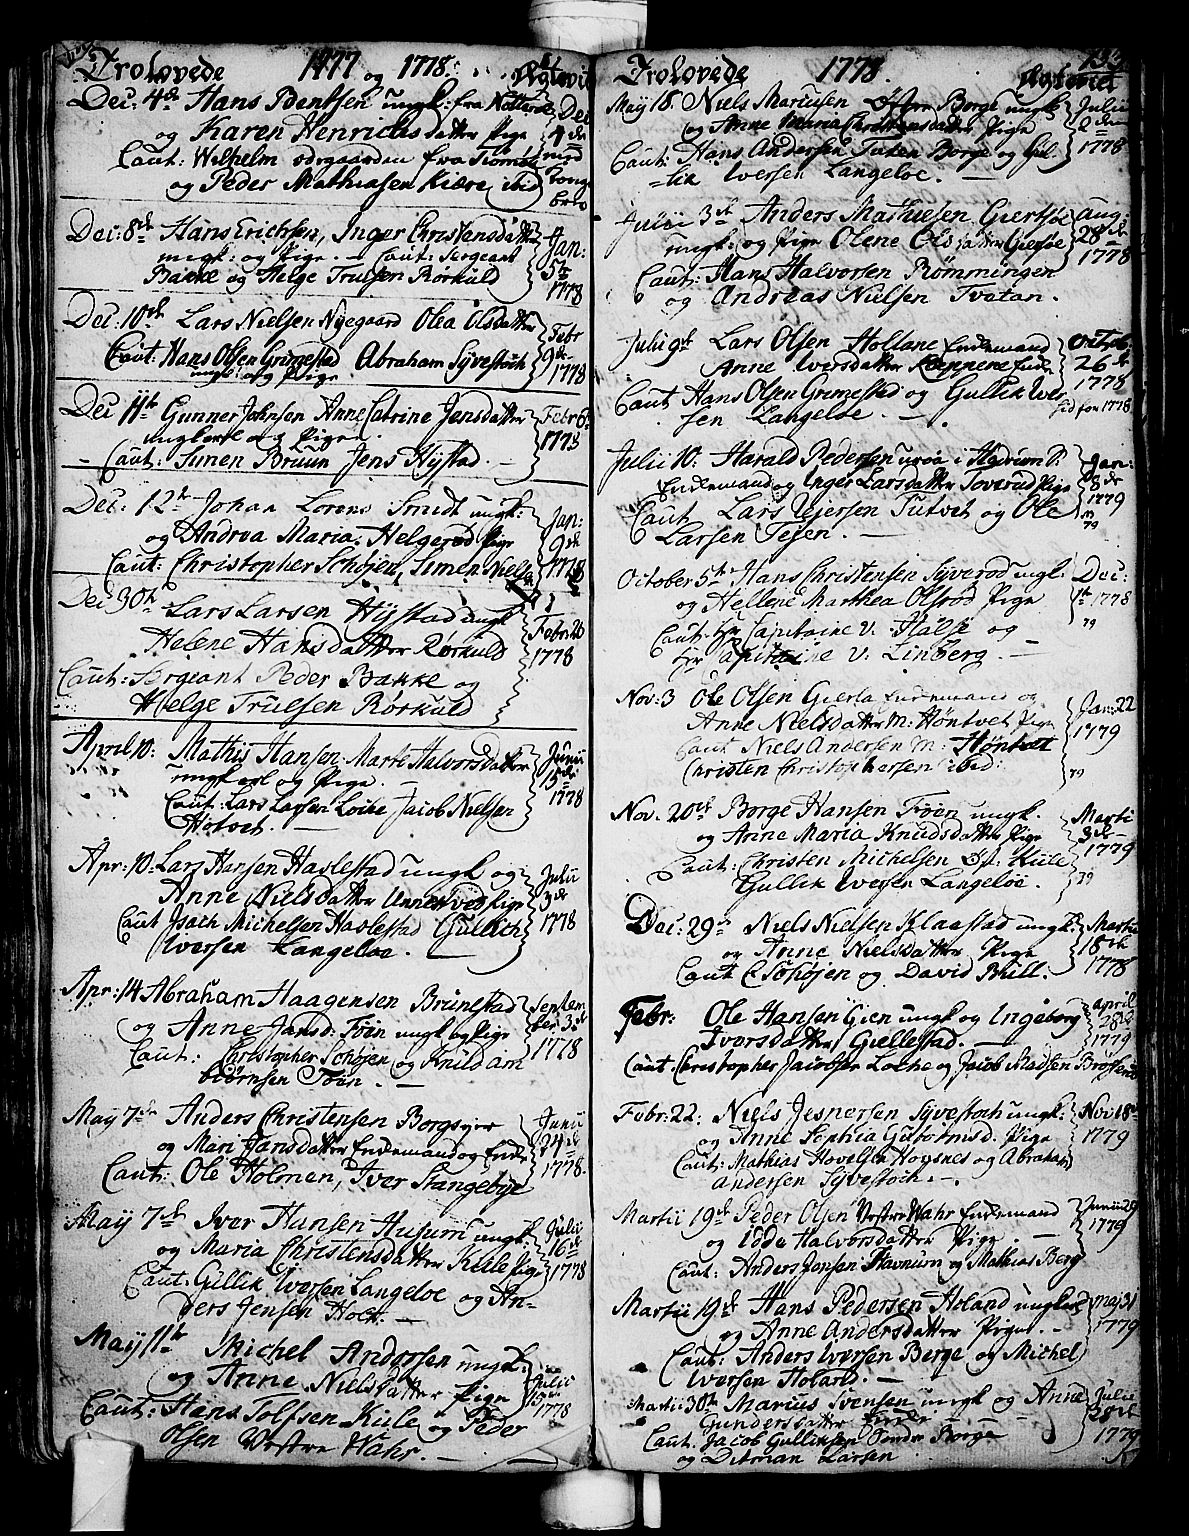 Trolovede 1777 og 1778. Ægteviet
Dec: 4de Hans Bentsen ungk: fra Nötterøe Dec
og Karen Henrichsdatter Pige 4de
Caut: Wilhelm fra Tiömöe med
og Peder Mathiasen Kiære ibid brev
Dec: 8de Hans Erichsen, Inger Christensdatter Jan:
ungk: og Pige. Caut: Sergeant 5te
Bakke og Helge Truelsen Rørkuld 1778
Dec: 10de Lars Nielsen Nyegaard Olea Olsdatter Febr
Caut: Hans Olsen Grimestad Abraham Syvestoch 9de
ungk: og Pige 1778
Dec 11te Gunner Johnsen Anne Catrine Jensdatter Febr 6te
ungkarl og Pige. 1778
Caut: Simen Bruun Jens Hystad.
Dec: 12te Johan Lorens Smidt ungk: Jan:
og Andrea Maria Helgerød Pige 9de
Caut: Christopher Schöjen, Simen Niels 1778
Dec 30te Lars Larsen Hystad ungk Febr: 20
Helene Hansdatter Rørkuld 1778
Caut: Sergeant Peder Bakke og
Helge Truelsen Rørkuld
April 10: Mathis Hansen Marte Halvorsdatter Junii
ungkarl og Pige. 15de
Caut: Lars Larsen Loike Jacob Nielsen 1778
Hotvet.
Apr: 10: Lars Hansen Havlestad ungk og Julii
Anne Nielsdatter Unneved Pige 3de
Caut Isach Michelsen Havlestad Gullich 1778
Iversen Langeloe.
Apr: 14 Abraham Haagensen Brunestad Septem
og Anne Jansd: Föin ungk og Pige ber 3de
Caut: Christopher Schöjen og Knud am 1778
biörnsen Föin.
May 7de Anders Christensen Borgejer Junii
og Mari Jansdatter Enkemand og Enke 24de
Caut: Ole Holmen, Iver Stangebye 1778.
May 7de Iver Hansen Husum ungk Julii
og Maria Christensdatter Kiile Pige 16de
Caut: Gullik Iversen Langeloe og An- 1778
ders Jensen Holt.
May 11te Michel Andersen ungk: Julii
og Anne Nielsdatter Pige
Caut: Hans Tolfsen Kiile og Peder 1778
Olsen Vestre Wahr.
Trolovede 1778. Ægteviet
May 18 Niels Mariusen Borge ungk Julii
og Anne Maria Christensdatter Pige 2den
Caut: Hans Andersen Tuten Borge og Gul- 1778
lik Iversen Langeloe.
Julii 3de Anders Mathiesen Giertsöe Aug:
ungk: og Pige Olene Olsdatter Gipsöe 28de
Caut: Hans Halvorsen Römmingen 1778
og Andreas Nielsen Tvetan.
Juli 9de Lars Olsen Hollane Enkemand Octob
Anne Iversdatter Kieppene Enke 26de
Caut Hans Olsen Grimestad og Gullik Iver 1778
sen Langeloe.
Julii 10: Harald Pedersen i Hedrum P: Jan:
Enkemand og Inger Larsdatter Toverud Pige 8de
Caut Lars Ejersen Tutvet og Ole 1779
Larsen Tejen. 79
October 5te Hans Christensen Syverød ungk: Dec:
og Hellene Marthea Olsrød Pige 1te 1778
Caut: Hr Capitaine v: Halse og 79
Hr Capitaine v: Linberg.
Nov: 3 Ole Olsen Gierla Enkemand og Jan: 22
Anne Nielsdatter M: Höntvet Pige 1779
Caut Niels Andersen M: Höntvet
Christen Christophersen ibid: 79
Nov: 20de Borge Hansen Föen ungk. Marti
og Anne Maria Knudsdatter Pige 3de
Caut: Christen Michelsen Kiile 1779
Gullik Iversen Langeloe. 79
Dec: 29 Niels Nielsen Klaastad ungk: Marti
og Anne Nielsdatter Pige 18de
Caut C Schöjen og David Bull. 1778
Febr: Ole Hansen Gien ungk og Ingeborg April
Iversdatter Giellestad. 28de 1779
Caut Christopher Jacobsen Locke og Jacob Madsen
Febr: 22: Niels Jespersen Syvestoch ungk: Nov: 18de
og Anne Sophia Pige 1779
Caut: Mathias Hovelsen Hoysnes og Abraham
Andersen Syvestoch.
Martii 19de Peder Olsen Vestre Wahr Enkemand Junii 29
og Idde Halvorsdatter Pige. 1779
Caut: Anders Jonsen Havnum og Mathias Berg
Martii 19de Hans Pedersen Holand ungkarl Maj 31
og Anne Andersdatter Pige. 1779
Caut: Anders Iversen Berge og Michel
Iversen Holand.
Martii 30te Marius Svensen ungk og Anne Julii
Gundersdatter Enke 28de
Caut. Jacob Gulliksen Söndre Borge 1779
og Ditman Larsen